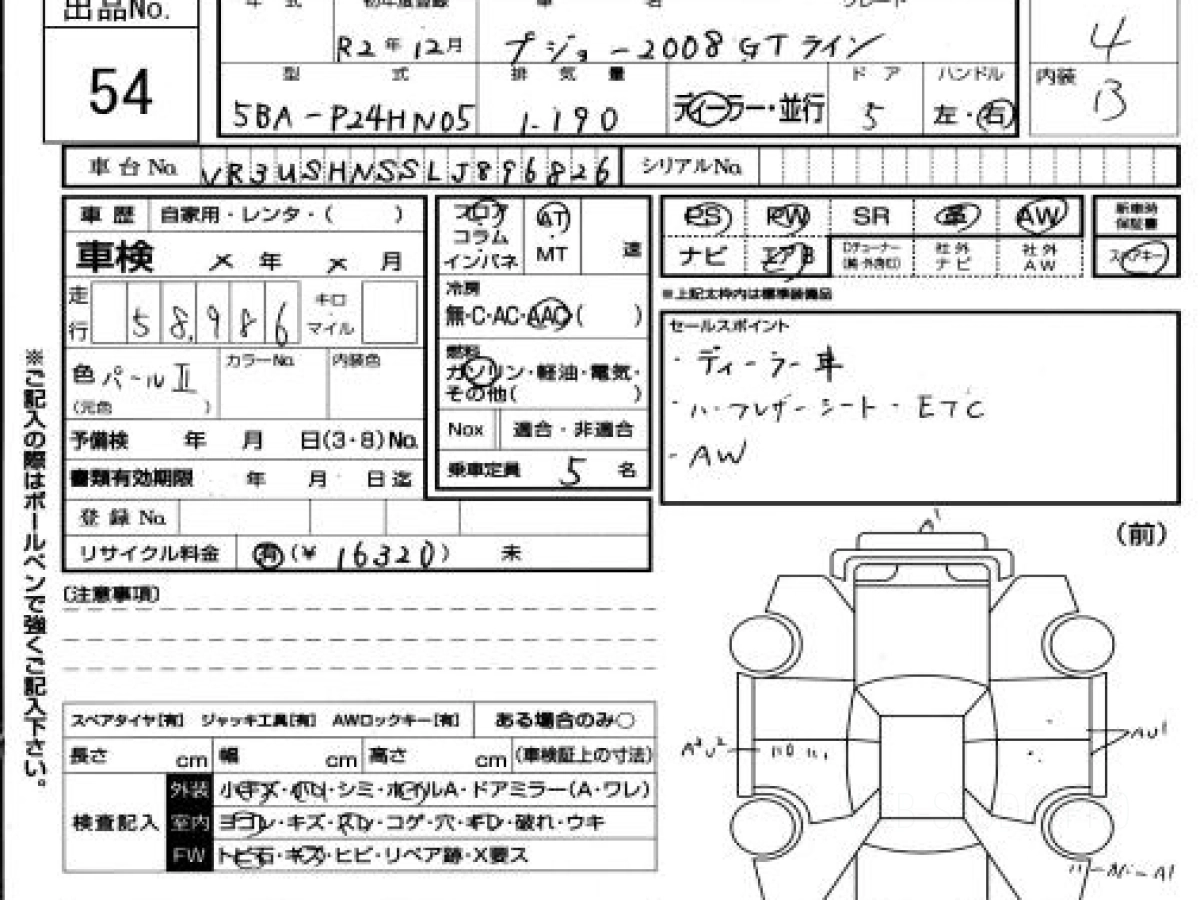 出品No.
54
年 式 初年度登録 車 名 グレード
R2年12月 プジョー2008 GTライン
4
型 式 排 気 量 ドア ハンドル 内装
5BA-P24HN05 1.190 ディーラー・並行 5 左・右 B
車台No. VR3USHNSSLJ896826 シリアルNo.
車歴 自家用・レンタ・( )
車検 × 年 × 月
走行 58,986 キロ・マイル
色 パールII カラーNo. 内装色
(元色 )
予備検 年 月 日(3・8)No.
書類有効期限 年 月 日迄
登録No.
リサイクル料金 有(¥ 16320) 未
フロア・コラム・インパネ
AT・MT 速
冷房
無・C・AC・AAC( )
燃料
ガソリン・軽油・電気・
その他( )
Nox 適合・非適合
乗車定員 5 名
PS PW SR 革 AW 新車時保証書
ナビ エアB Dチューナー 社外ナビ 社外AW スペアキー
※上記太枠内は標準装備品
セールスポイント
・ディーラー車
・ハーフレザーシート・ETC
・AW
〔注意事項〕
(前)
A1
A2U2
AU1
スペアタイヤ[有] ジャッキ工具[有] AWロックキー[有] ある場合のみ○
長さ cm 幅 cm 高さ cm (車検証上の寸法)
検査記入
外装 小キズ・凹・シミ・ホイルA・ドアミラー(A・ワレ)
室内 ヨゴレ・キズ・スレ・コゲ・穴・ギD・破れ・ウキ
FW トビ石・キズ・ヒビ・リペア跡・X要ス
※ご記入の際はボールペンで強くご記入下さい。